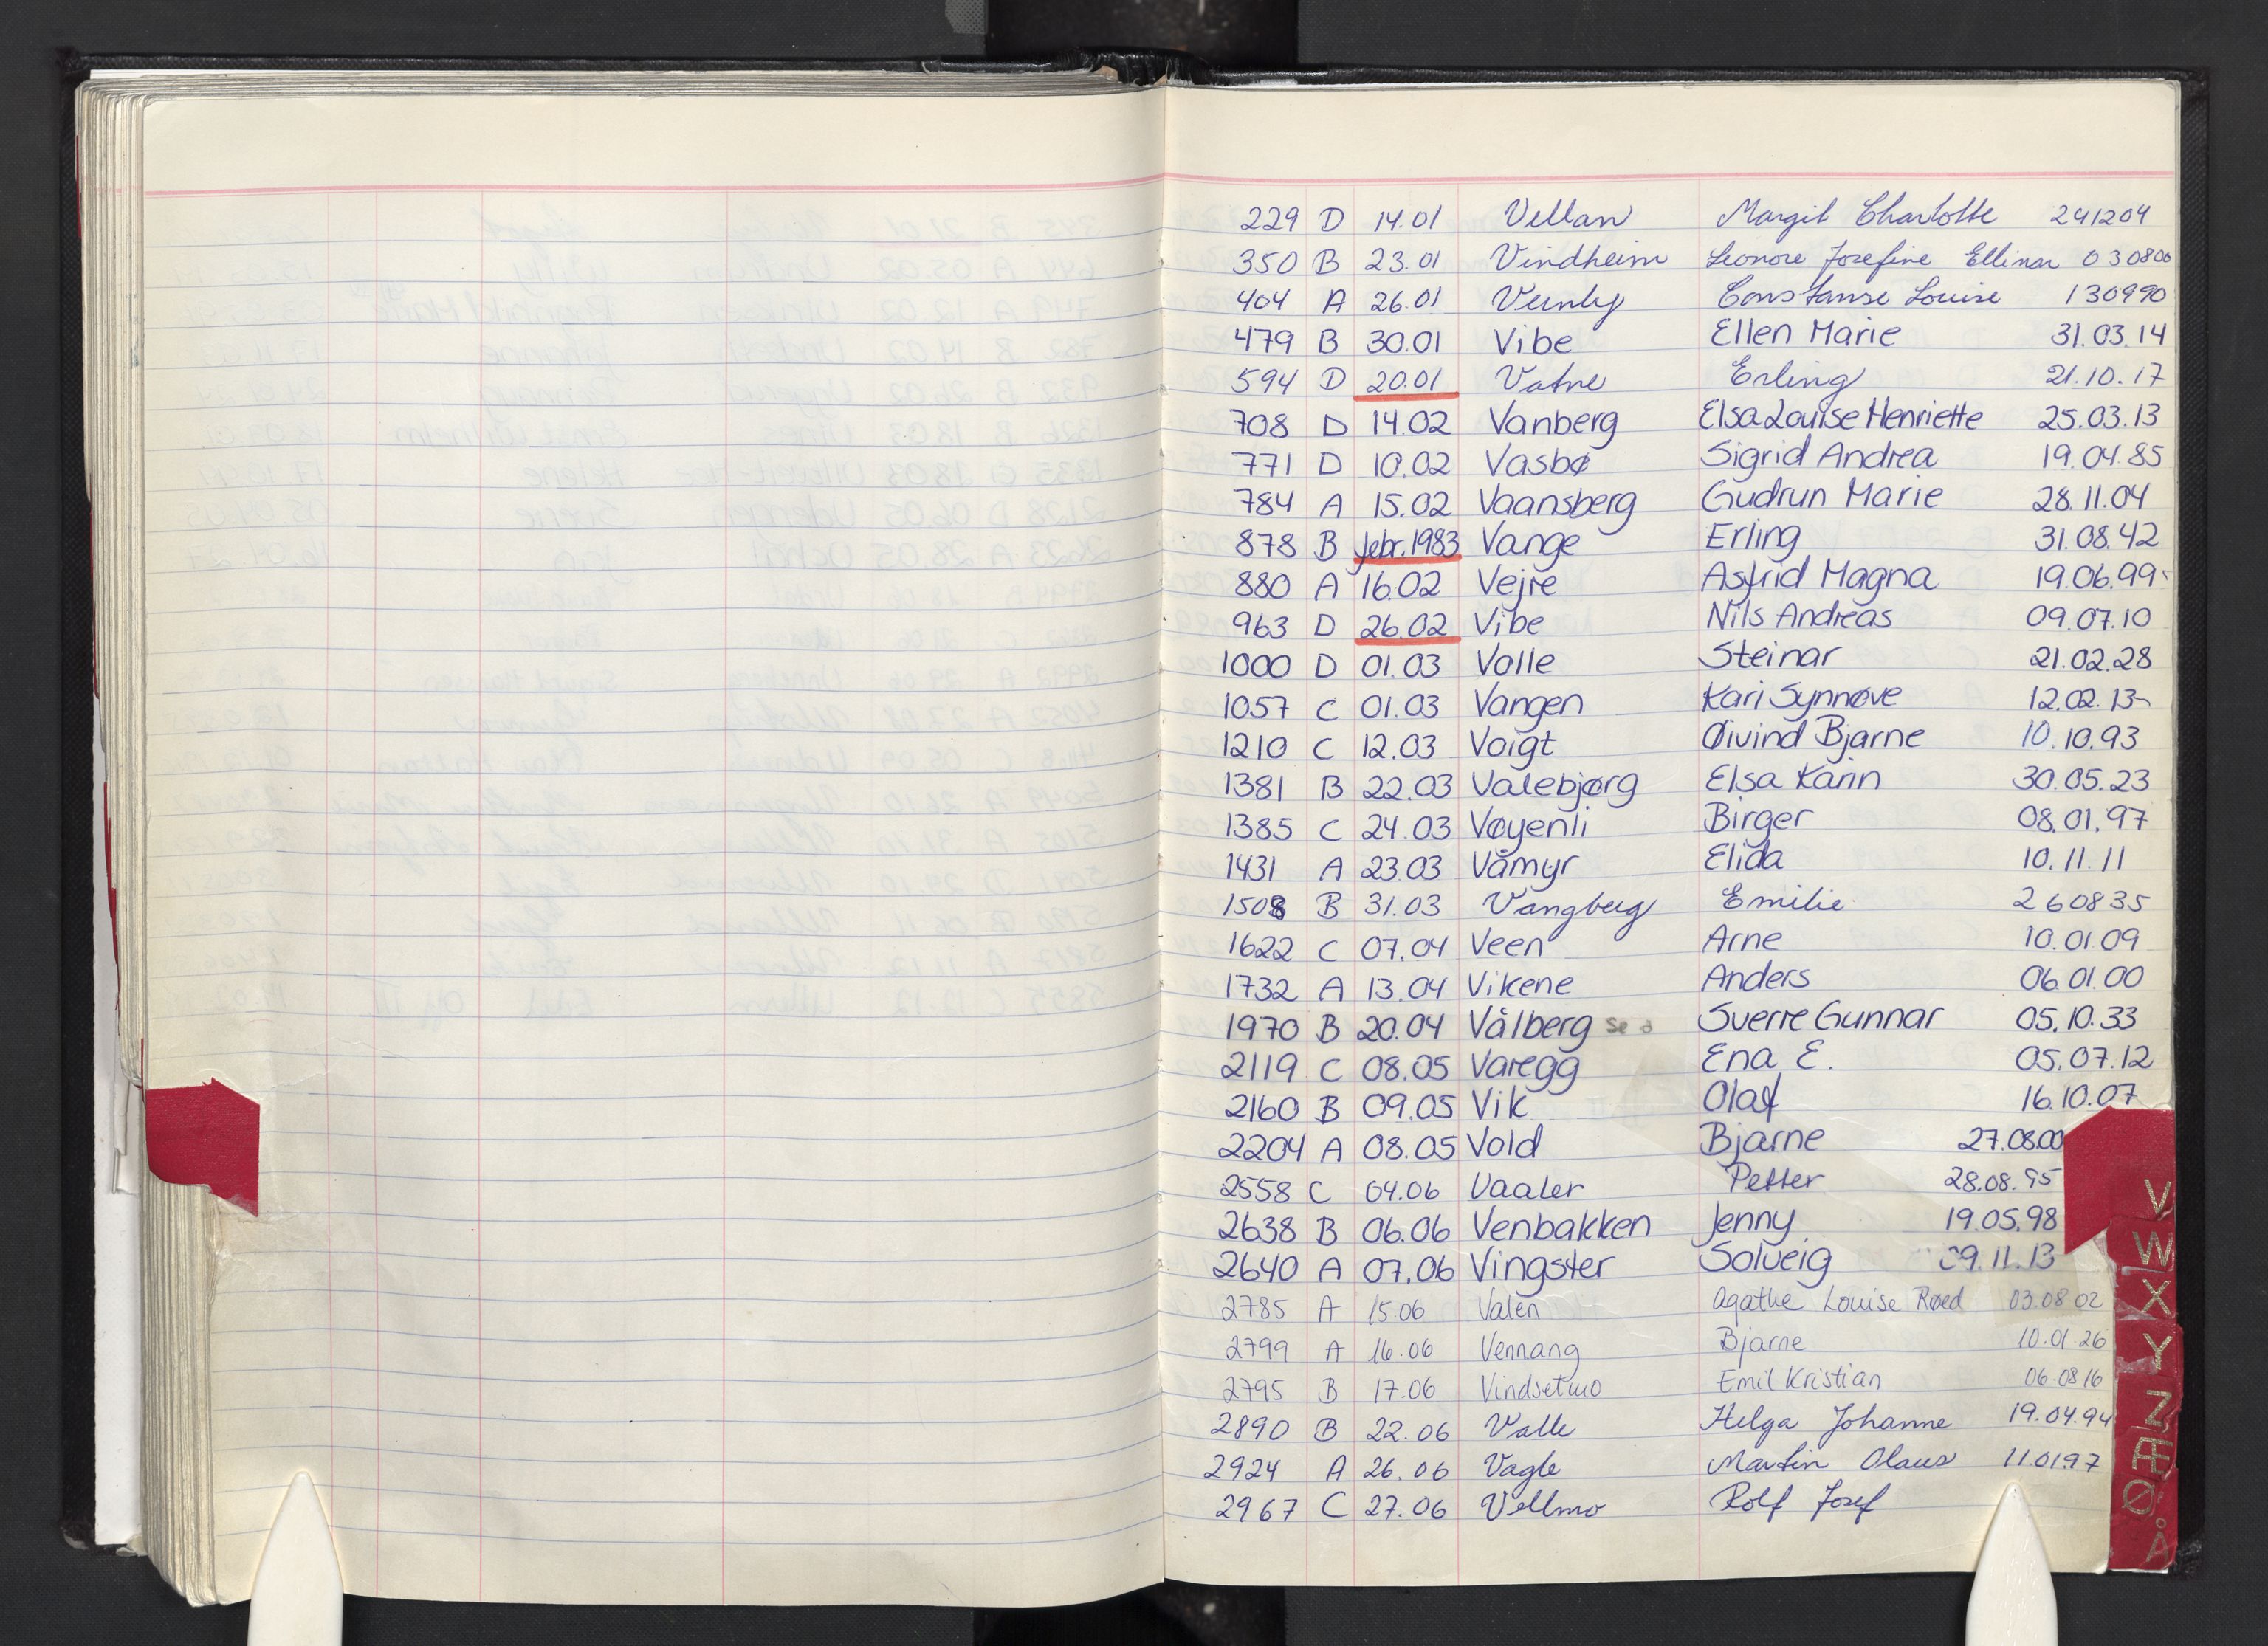 229 D 14.01 Vellan Margit Charlotte 241204
350 B 23.01 Vindheim Leonore Josefine Ellinor 030800
404 A 26.01 Constanse Louise 130990
479 B 30.01 Vibe Ellen Marie 31.03.14
594 D 20.01 Vatne Erling 21.10.17
708 D 14.02 Vanberg Elsa Louise Henriette 25.03.13
771 D 10.02 Vasbø Sigrid Andrea 19.04.85
784 A 15.02 Vaansberg Gudrun Marie 28.11.04
878 B febr.1983 Vange Erling 31.08.42
880 A 16.02 Vejre Astrid Magna 19.06.99
963 D 26.02 Vibe Nils Andreas 09.07.10
1000 D 01.03 Valle Steinar 21.02.28
1057 C 01.03 Vangen Kari Synnøve 12.02.13
1210 C 12.03 Voigt Øivind Bjarne 10.10.93
1381 B 22.03 Valebjørg Elsa Karin 30.05.23
1385 C 24.03 Vøyenli Birger 08.01.97
1431 A 23.03 Våmyr Elida 10.11.11
1508 B 31.03 Vangberg Emilie 260835
1622 C 07.04 Veen Arne 10.01.09
1732 A 13.04 Vikene Anders 06.01.00
1970 B 20.04 Vålberg se å Sverre Gunnar 05.10.33
2119 C 08.05 Varegg Ena E. 05.07.12
2160 B 09.05 Vik Olaf 16.10.07
2204 A 08.05 Vold Bjarne 27.08.00
2558 C 04.06 Vaaler Petter 28.08.95
2638 B 06.06 Venbakken Jenny 19.05.98
2640 A 07.06 Vingster Solveig 09.11.13
2785 A 15.06 Valen Agathe Louise Røed 03.08 02
2799 A 16.06 Vennang Bjarne 10.01.26
2795 B 17.06 Vindsetmo Emil Kristian 06.08 16
2890 B 22.06 Valle Helga Johanne 19.04.94
2924 A 26.06 Vagle Martin Olaus 11.01.97
2967 C 27.06 Vellmo Rolf Josef
V
W
X
Y
Z
Æ
Ø
Å